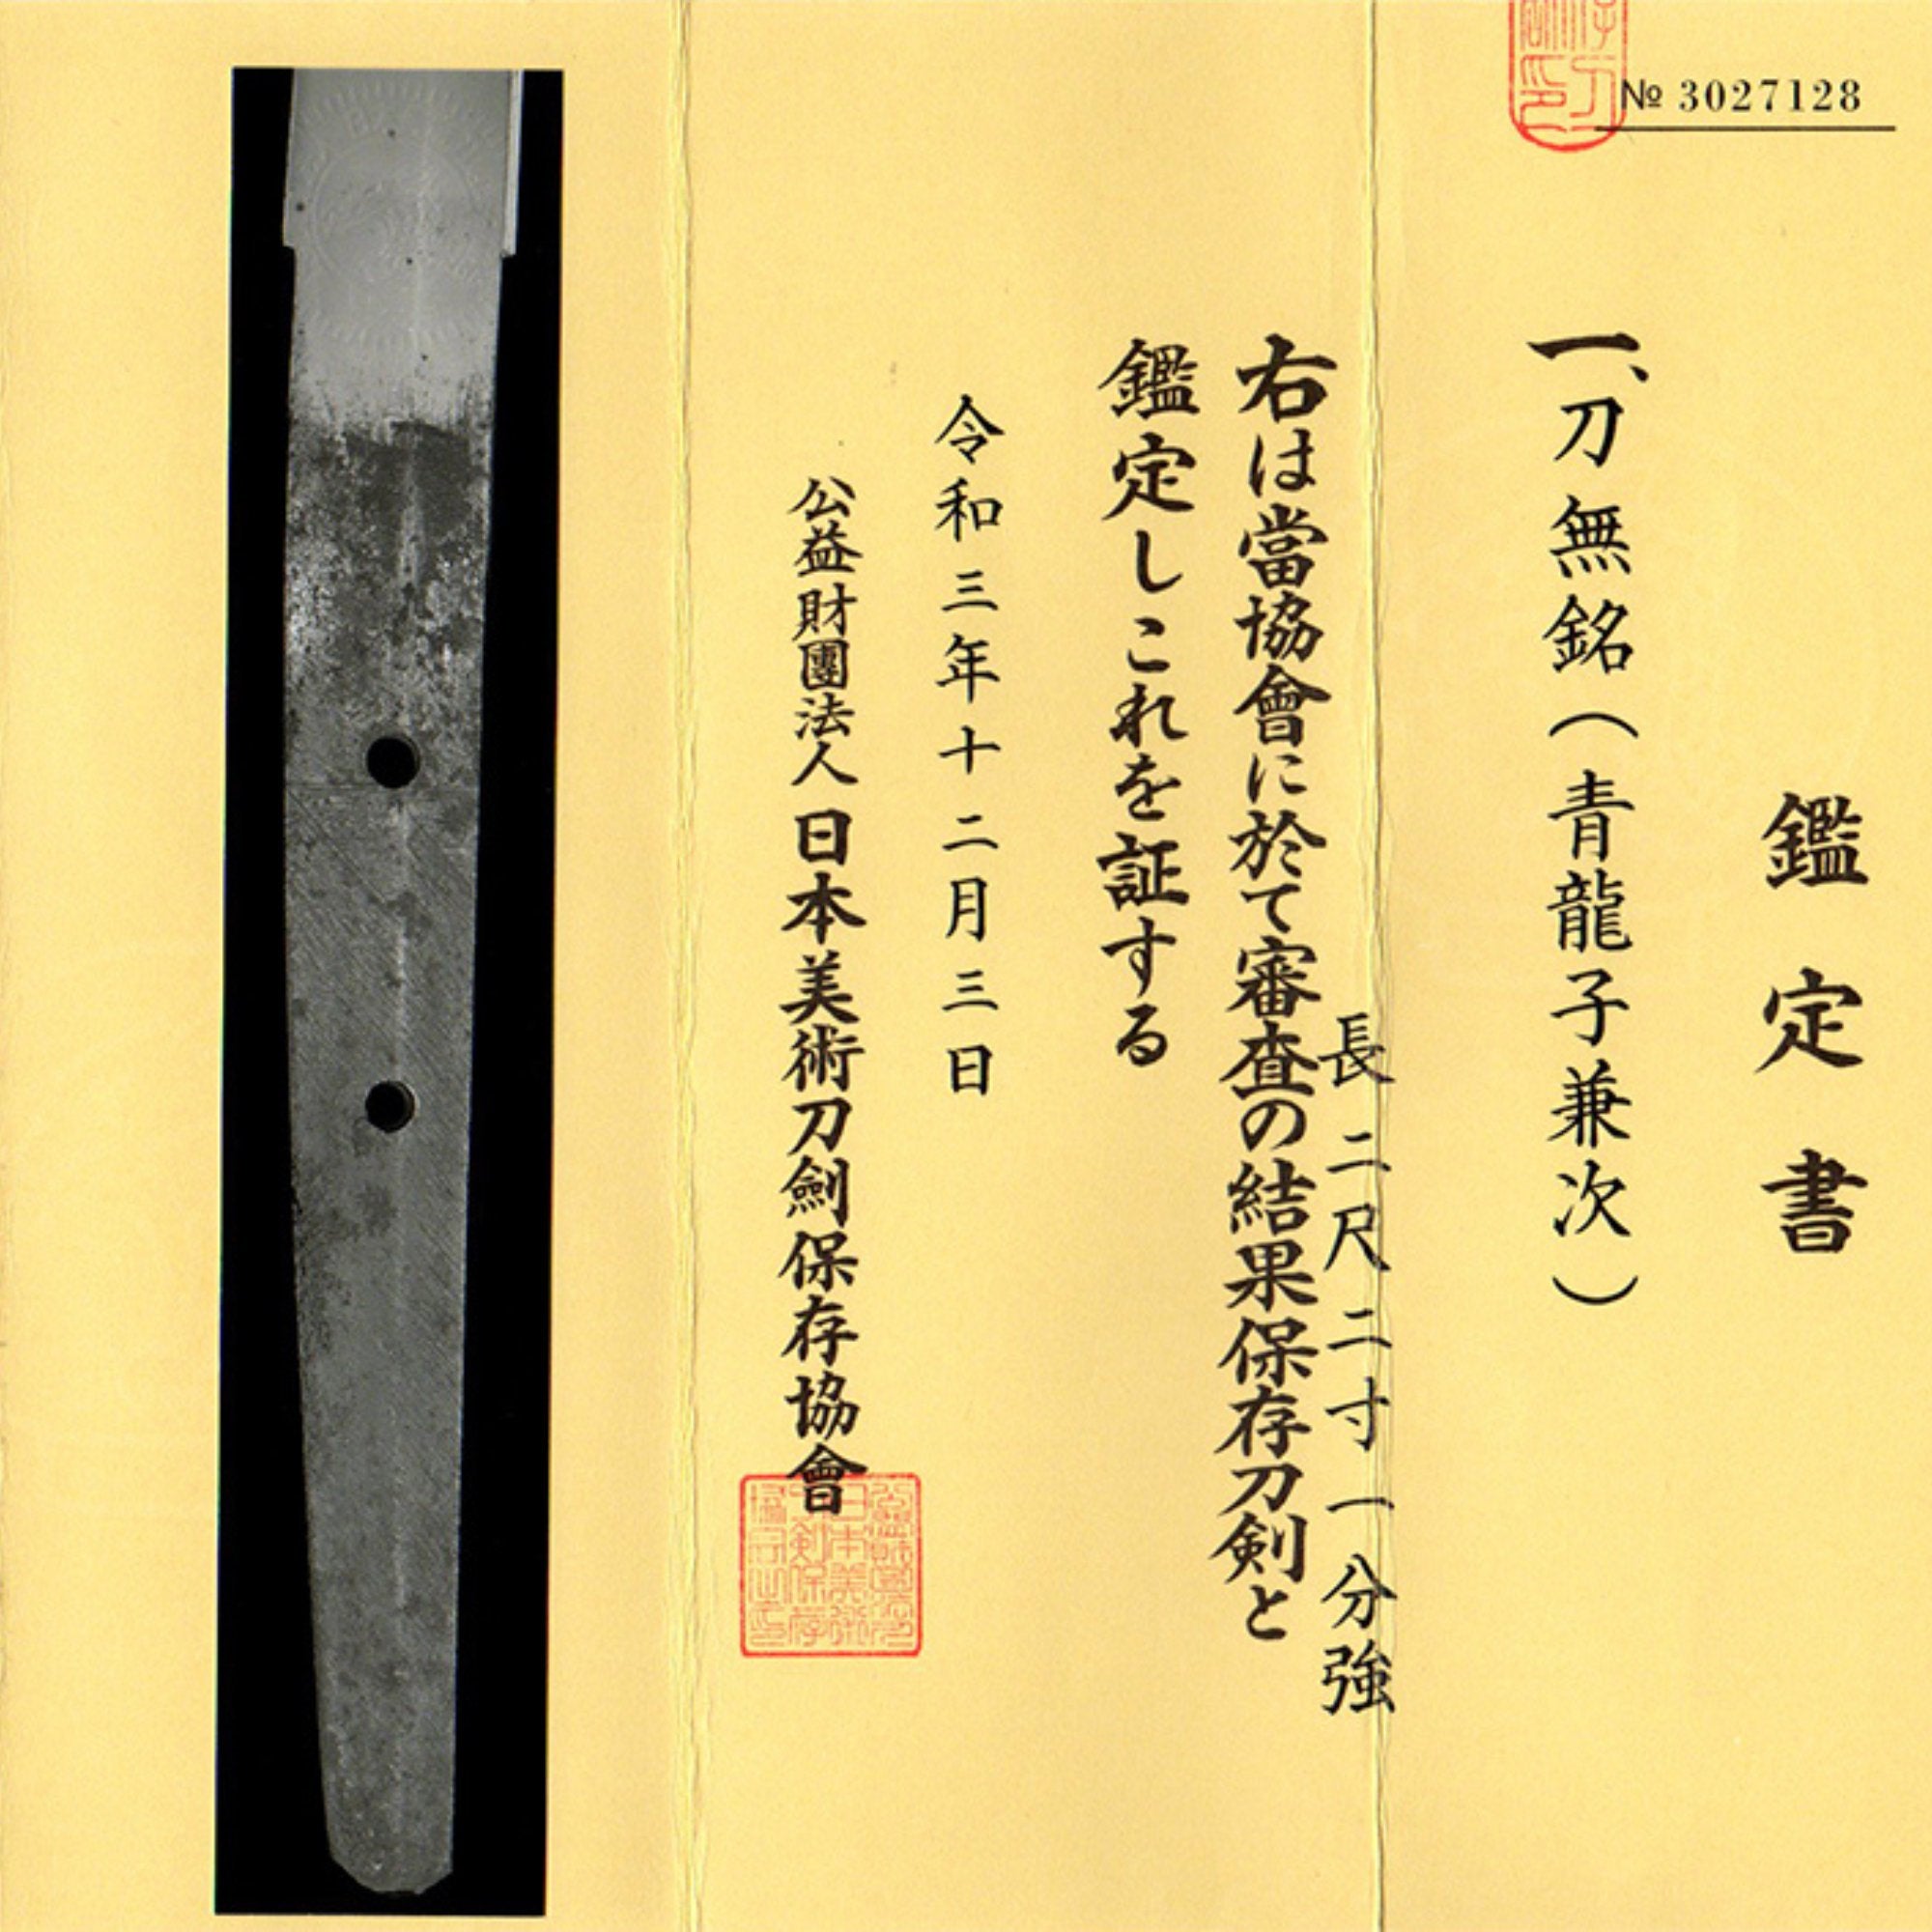 № 3027128
鑑定書
一、刀 無銘（青龍子兼次）
長 二尺二寸一分強
右は當協會に於て審査の結果保存刀剣と
鑑定しこれを証する
令和三年十二月三日
公益財團法人 日本美術刀劍保存協會